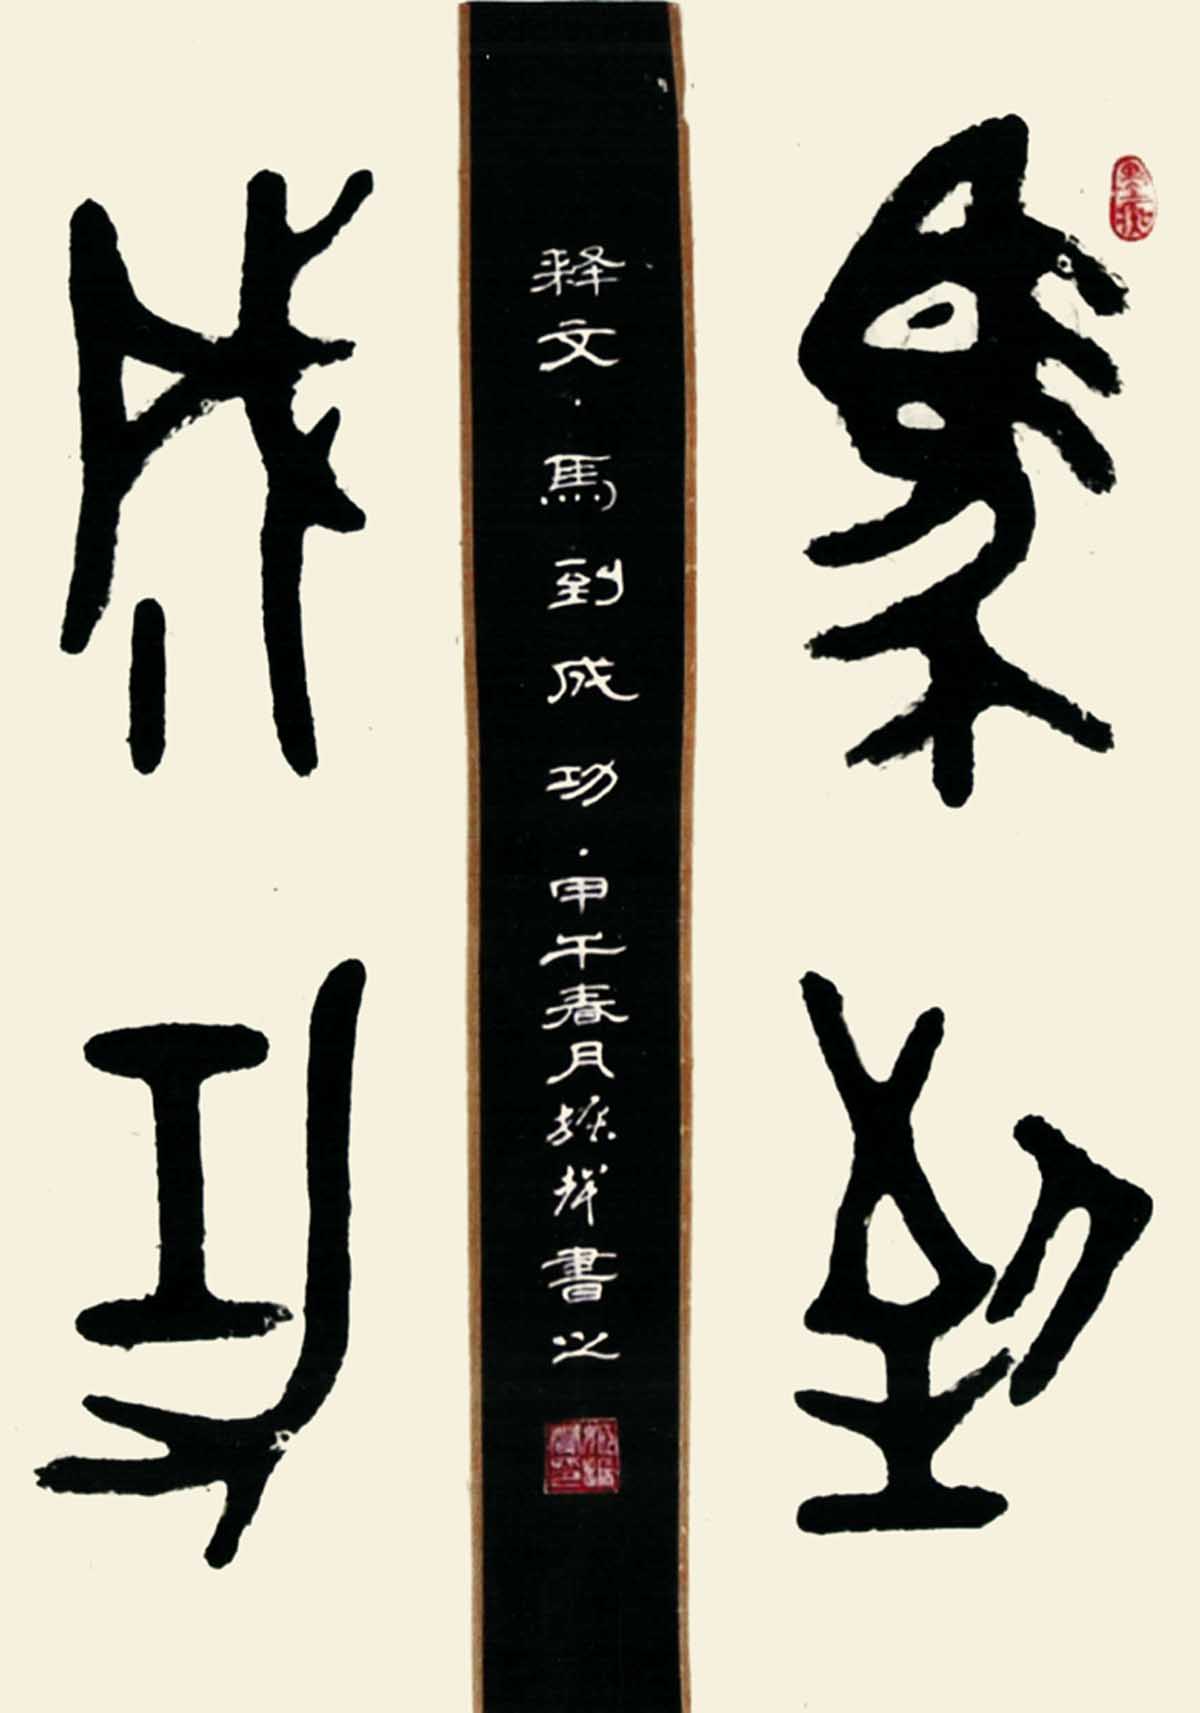 馬到
成功
释文·馬到成功·甲午春月振辉書之